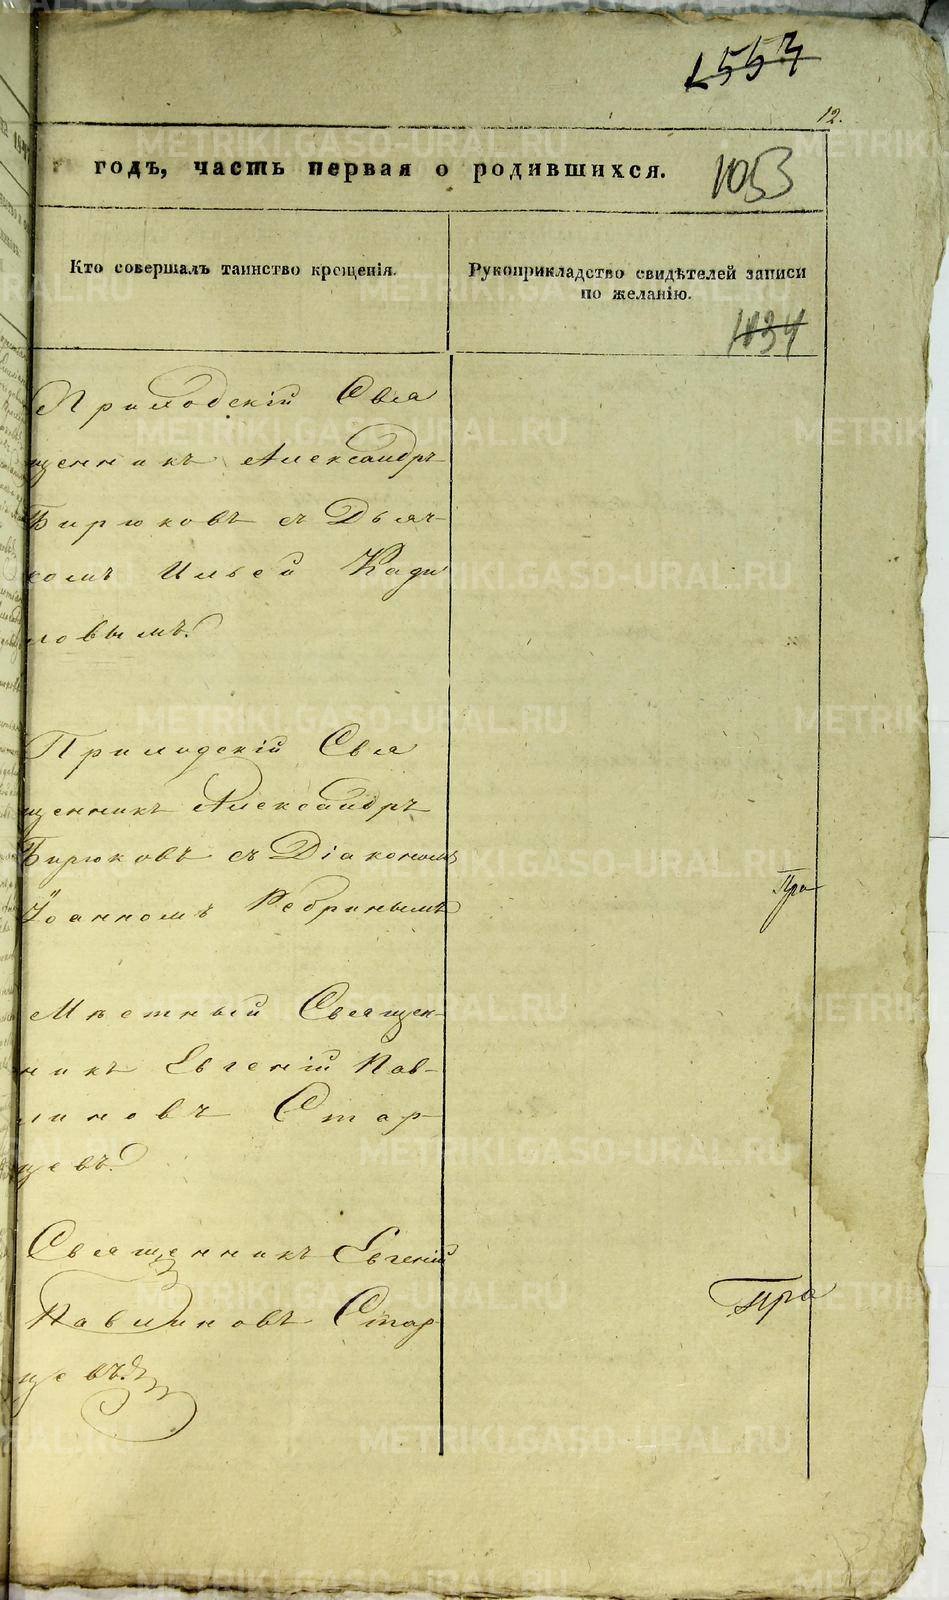 1557
12.
годъ, часть первая о родившихся.
1053
Кто совершалъ таинство крещенія.
Рукоприкладство свидѣтелей записи
по желанію.
1034
Приходскій Свя
щенникъ Александръ
Бирюковъ съ Дьяч-
комъ Ильей Кади
ловымъ.
Приходскій Свя
щенникъ Александръ
Бирюковъ съ Діакономъ
Іоанномъ Ребринымъ
Пра
Мѣстный Священ-
никъ Евгеній Пав-
линовъ Стар-
цевъ.
Священникъ Евгеній
Павлиновъ Стар
цевъ.
Пра
METRIKI.GASO-URAL.RU